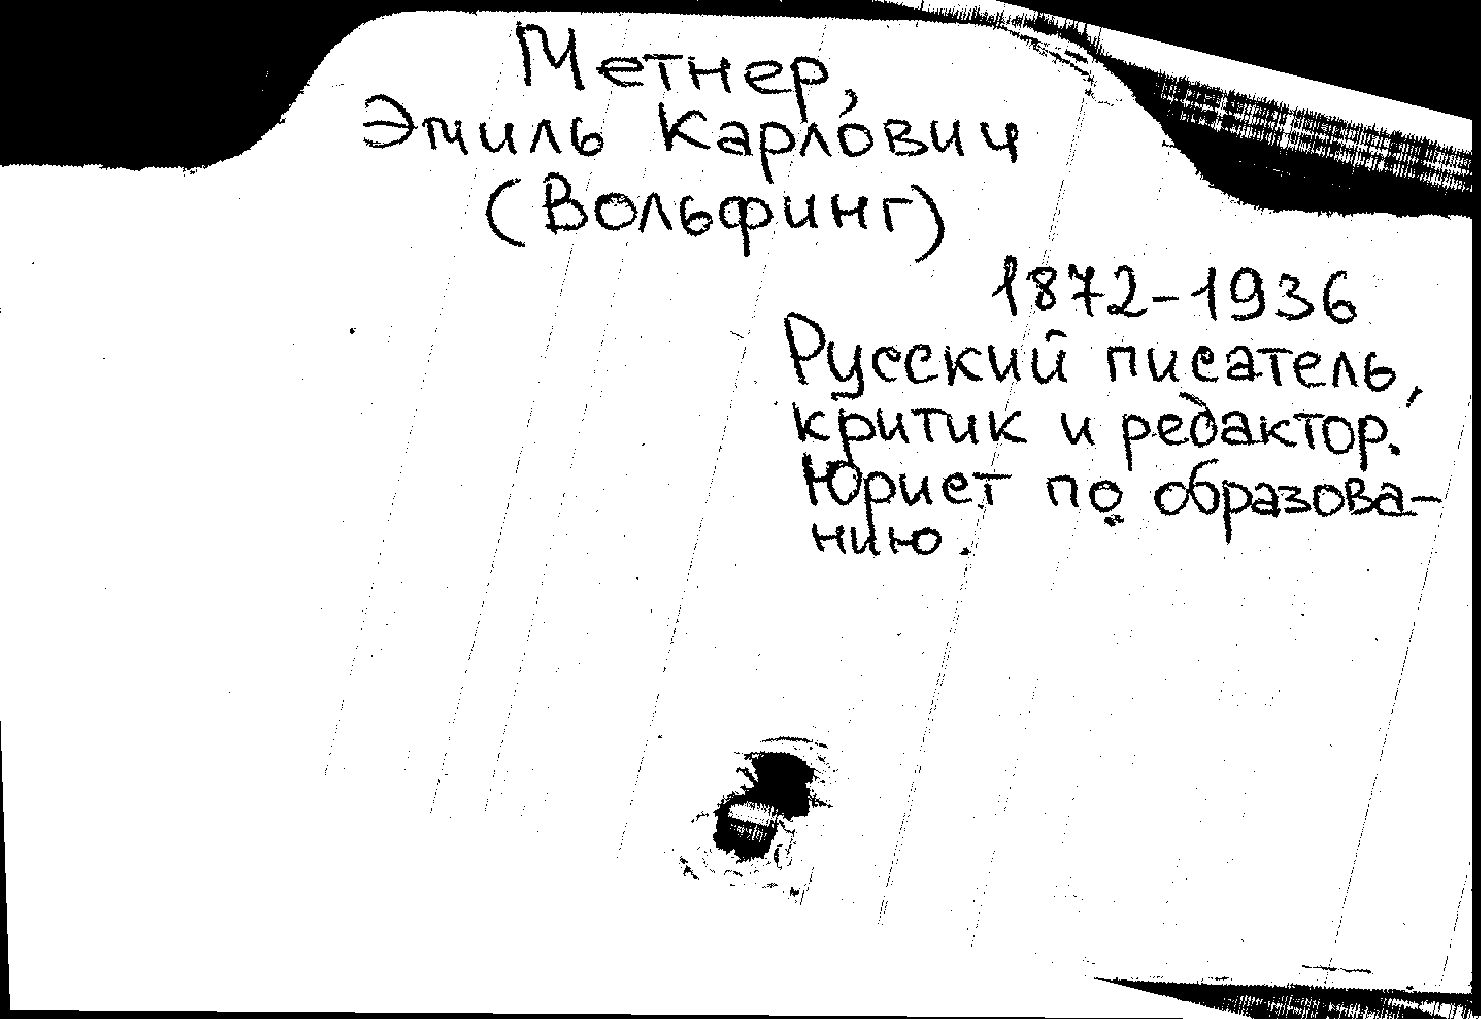 Метнер,
Эмиль Карлович
(Вольфинг)
1872-1936
Русский писатель,
критик и редактор.
Юрист по образова-
нию.